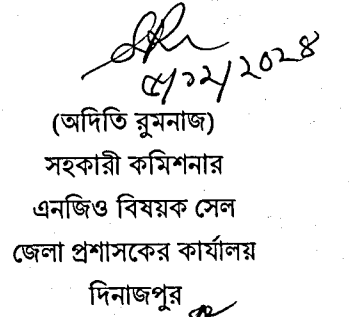 ৫/১২/২০২৪
(অদিতি রুমনাজ)
সহকারী কমিশনার
এনজিও বিষয়ক সেল
জেলা প্রশাসকের কার্যালয়
দিনাজপুর